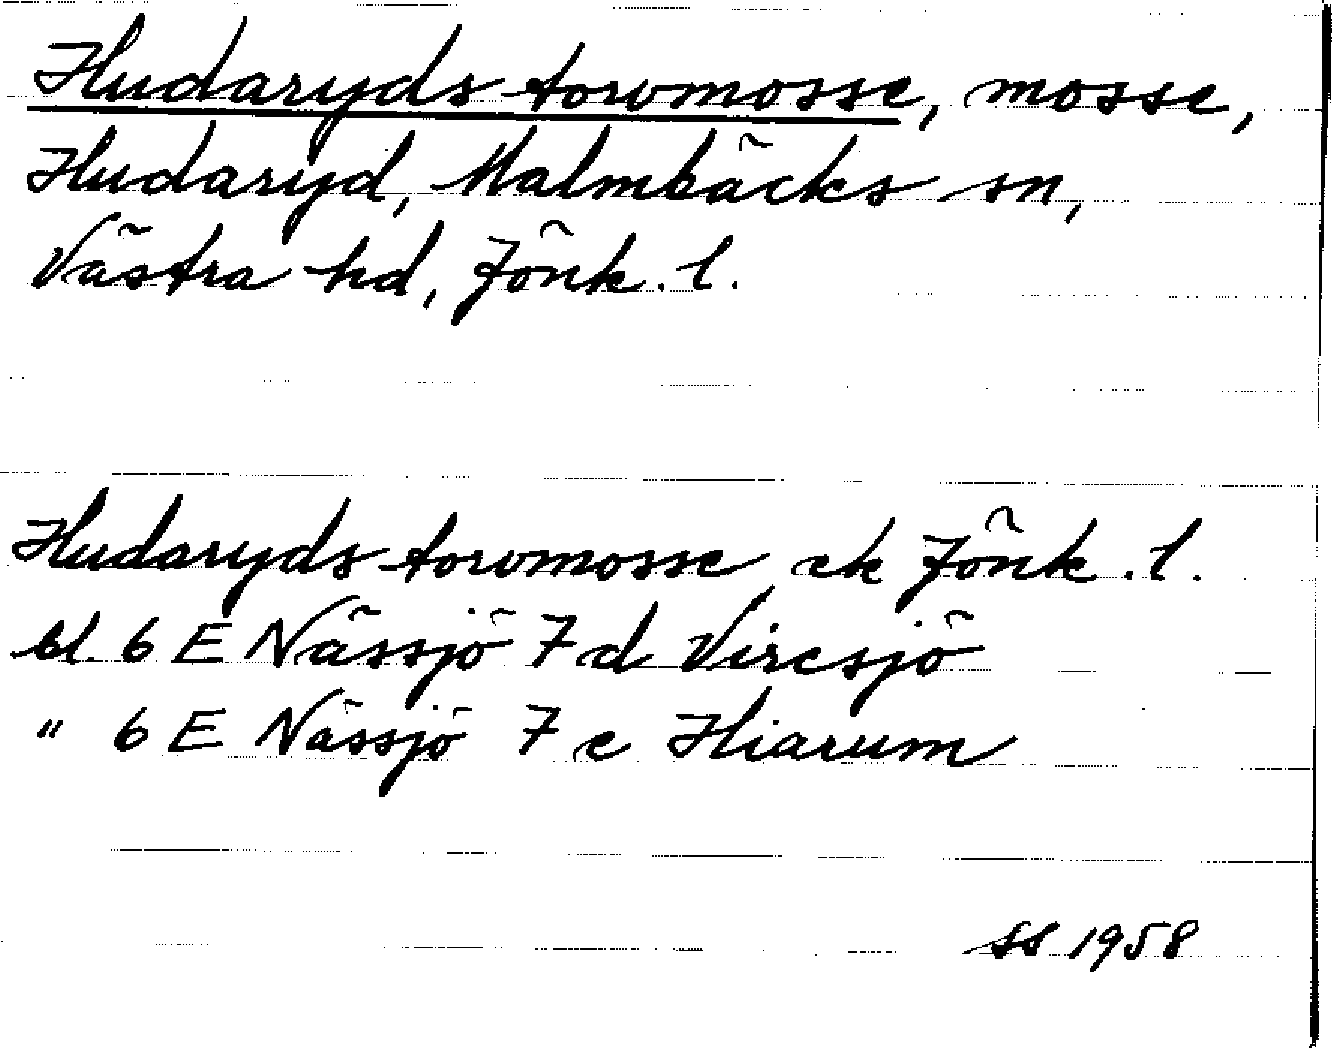 Hudaryds torvmosse, mosse,
Hudaryd, Malmbäcks sn,
Västra hd, Jönk. l.
Hudaryds torvmosse ek Jönk. l.
bl. 6 E Nässjö 7 d Viresjö
" 6 E Nässjö 7 e Hiarum
SS 1958